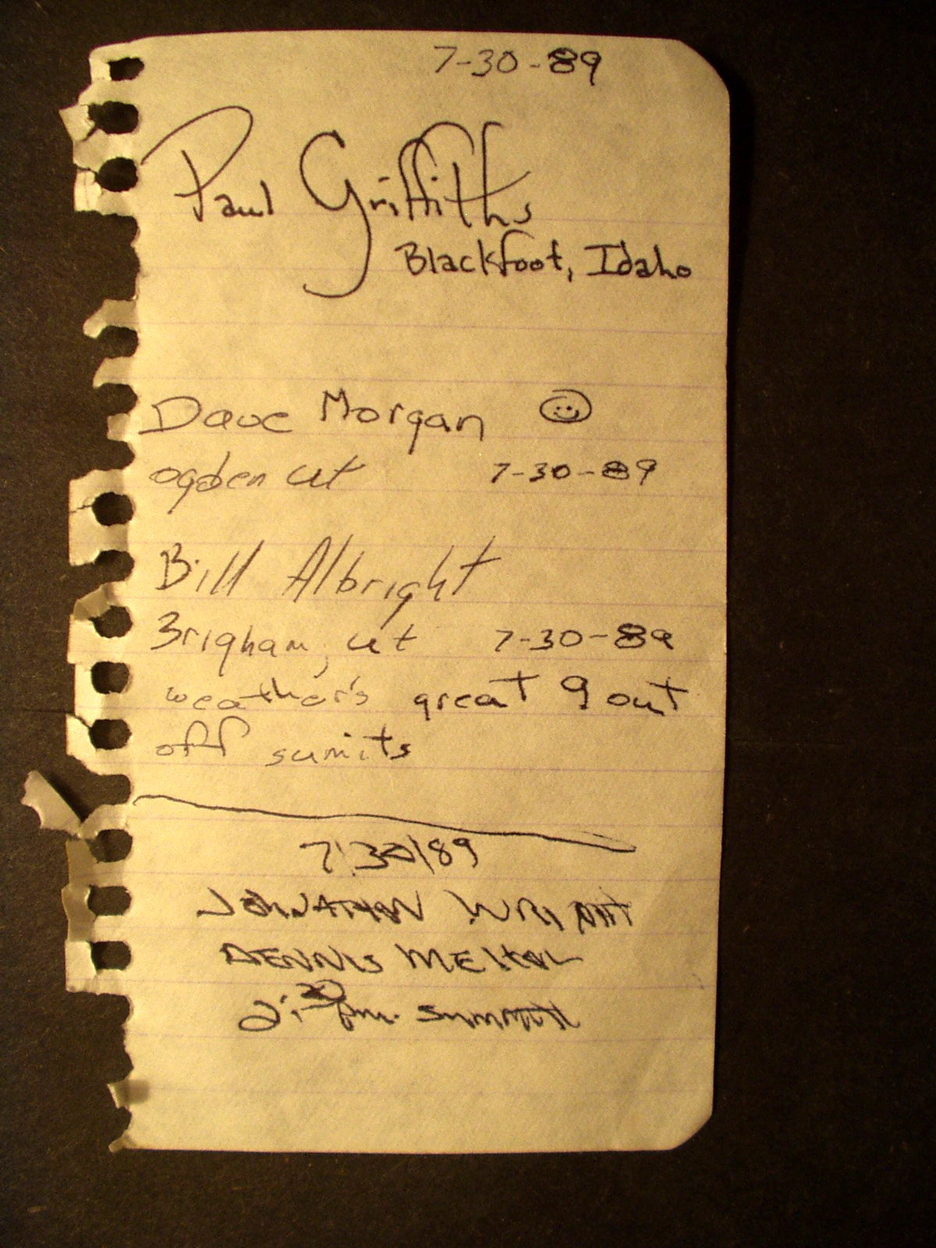 7-30-89
Paul Griffiths
Blackfoot, Idaho
Dave Morgan
ogden ut 7-30-89
Bill Albright
Brigham, ut 7-30-89
weather's great 9 out
off sumits
7/30/89
JOHNATHAN WRIGHT
DENNIS
2:30 pm. summit